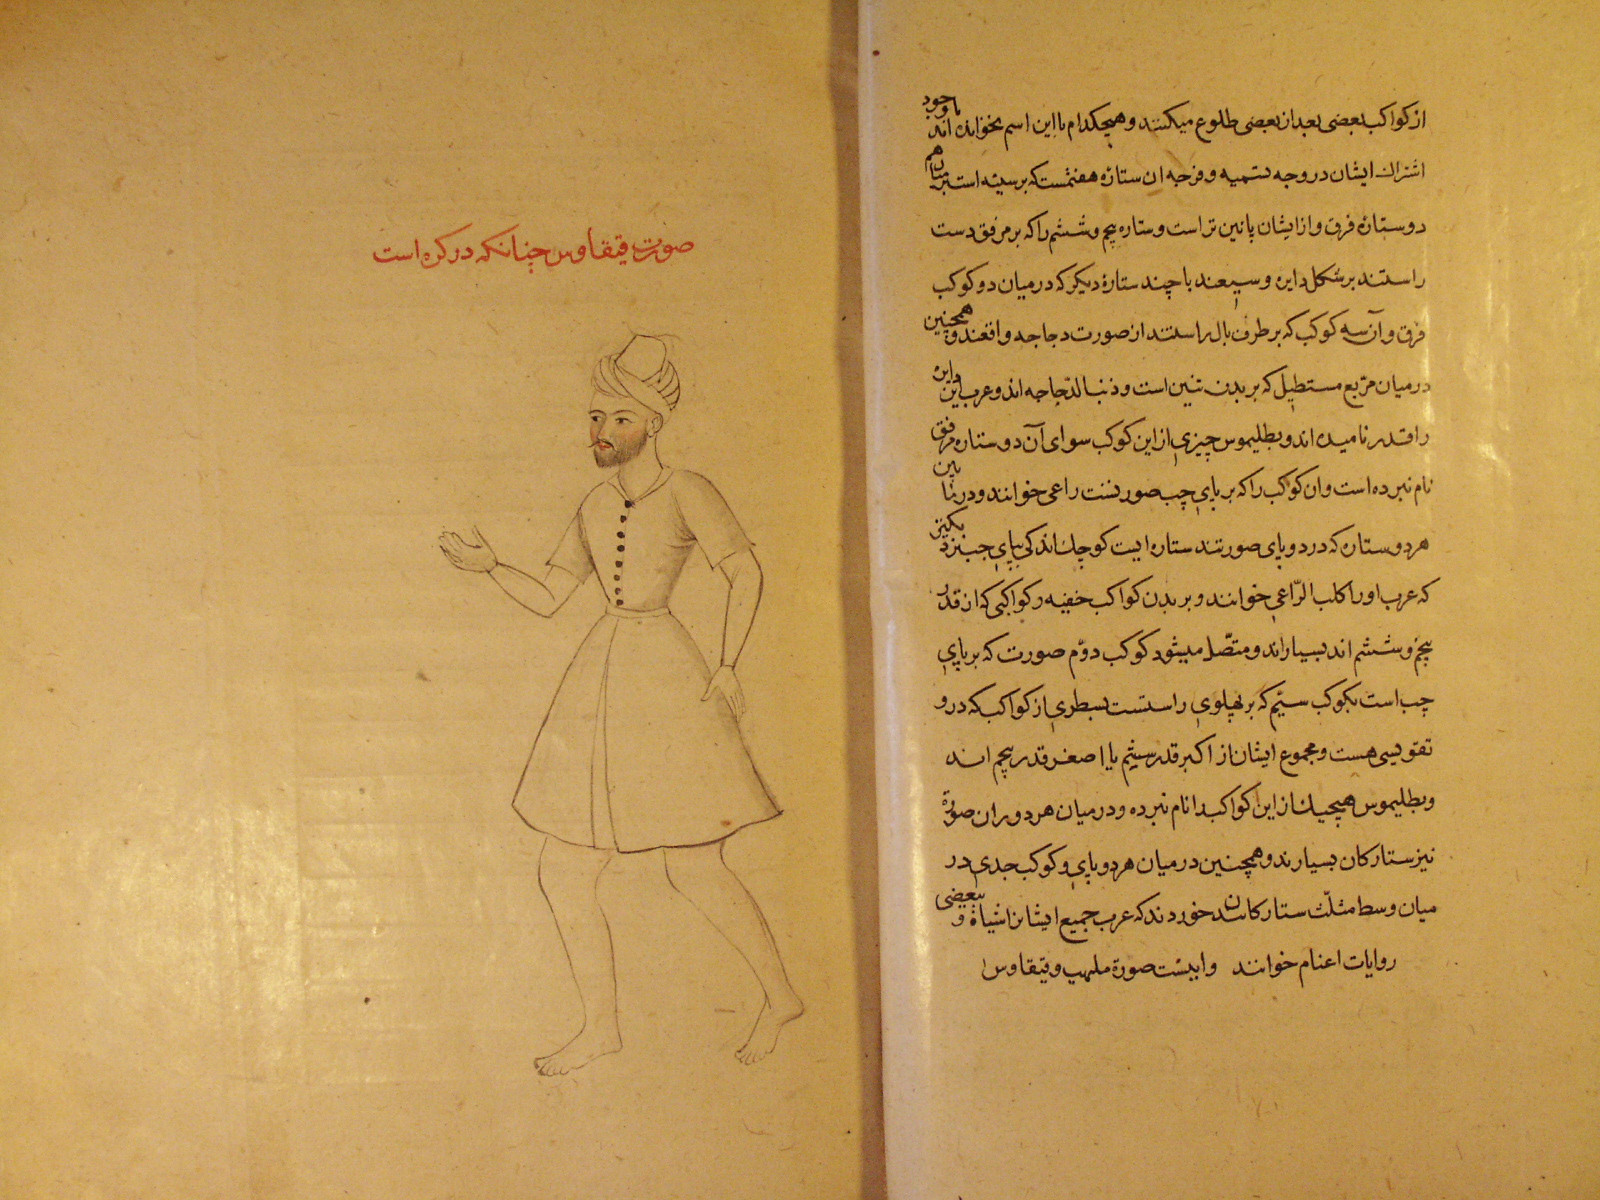 از کواکب بعضی بعد از بعضی طلوع میکنند و هیچکدام با این اسم نخوانده اند با وجود
اشتراك ایشان در وجه تسمیه و فرجه ان ستاره هفتمست که بر سینه است بر میان هم
دو ستاره فرق و از ایشان پائین تر است و ستاره پنجم و ششم را که بر مرفق دست
راستند بر شکل دایره وسیعند با چند ستاره دیگر که در میان دو کوکب
فرق و آن سه کوکب که بر طرف بال راستند از صورت دجاجه واقعند و همچنین
در میان مربع مستطیل که بر بدن تنین است و ذنب الدجاجه اند و عرب این دایره
را قدر نامیده اند و بطلیموس چیزی از این کوکب سوای آن دو ستاره مرفق
نام نبرده است و ان کوکب را که بر پای چپ صورتست راعی خوانند و در مابین
هر دو ستاره که در دو پای صورتند ستاره ایست کوچك اندکی بپای چپ نزدیکتر
که عرب او را کلب الرّاعی خوانند و بر بدن کواکب خفیه و کواکبی که از قدر
پنجم و ششم اند بسیار اند و متّصل میشود کوکب دوّم صورت که بر پای
چپ است بکوکب سیّم که بر پهلوی راستست بسطری از کواکب که در و
تقویسی هست و مجموع ایشان از اکبر قدر سیّم یا اصغر قدر پنجم اند
و بطلیموس هیچیك از این کواکب را نام نبرده و در میان هر دو ران صورة
نیز ستارکان بسیارند و همچنین در میان هر دو پای و کوکب جدی در
میان وسط مثلّث ستارکانند خورد ند که عرب جمیع ایشانرا شیاة و ببعضی
روایات اغنام خوانند و اینست صورة ملهب و قیقاوس
صورت قیقاوس چنانکه در کره است